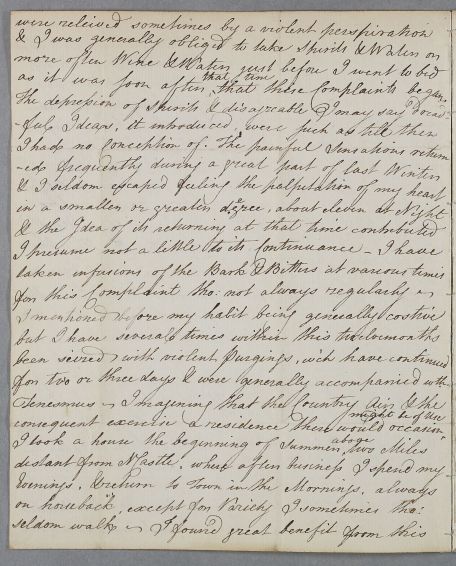 were releived sometimes by a violent perspiration
& I was generally obliged to take Spirits & Water or
more often Wine & Water just before I went to bed
as it was soon after that time, that these Complaints began.
The depression of Spirits & disagreable I may say Dread
-full Ideas, it introduced, were such as till then
I had no conception of. The painful Sensations return
-ed frequently during a great part of last Winter
& I seldom escaped feeling the palpitation of my heart
in a smaller or greater degree, about eleven at Night
& the Idea of its returning at that time contributed
I presume not a little to its Continuance - I have
taken infusions of the Bark & Bitters at various times
for this Complaint tho: not always regularly -
I mentioned before my habit being generally costive
but I have several times within this twelvemonths
been seized with violent Purgings, wch have continued
for two or three days & were generally accompanied with
Tenesmus - Imagining that the Country Air & the
consequent exercise a residence there would occasion might be of use
I took a house the beginning of Summer, above two Miles
distant from NCastle, where after business I spend my
Evenings, & return to Town in the Mornings, always
on horseback, except for Variety I sometimes tho:
seldom walk - I found great benefit from this